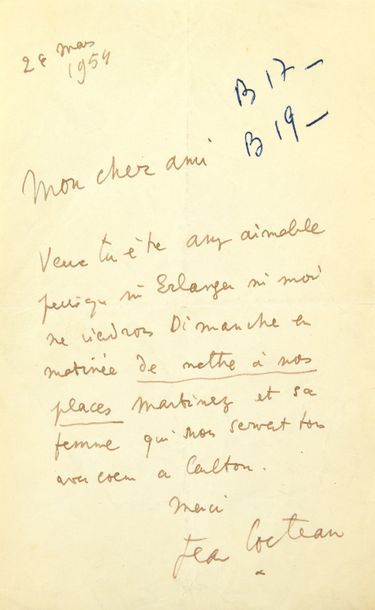 28 mars
1954
B 17 -
B 19 -
Mon cher ami
Veux tu être assez aimable
puisque ni Erlanger ni moi
ne viendrons Dimanche en
matinée de mettre à nos
places Martinez et sa
femme qui nous servent tous
avec coeur a Carlton.
Merci
Jean Cocteau